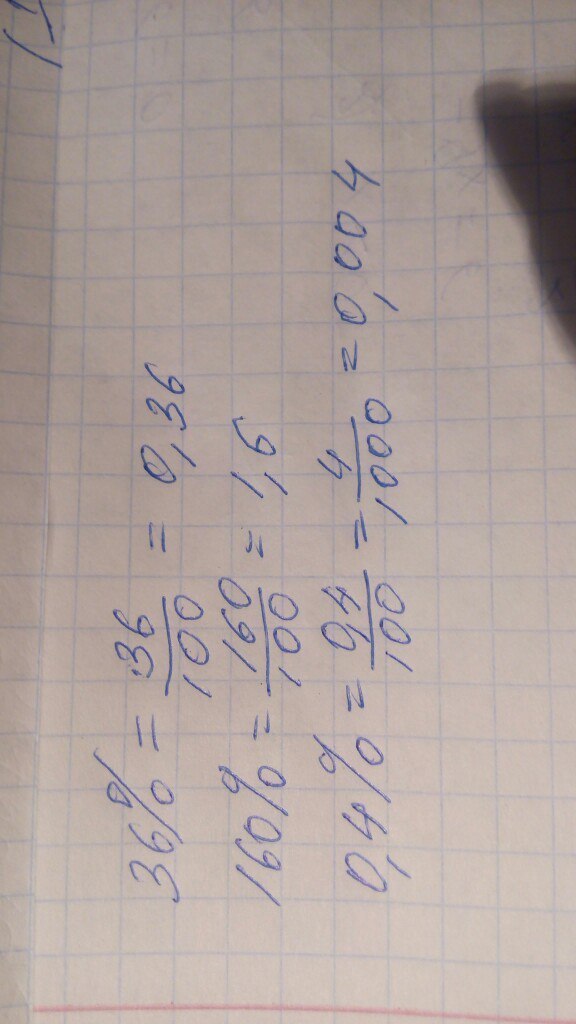 36% = 36/100 = 0,36
160% = 160/100 = 1,6
0,4% = 0,4/100 = 4/1000 = 0,004